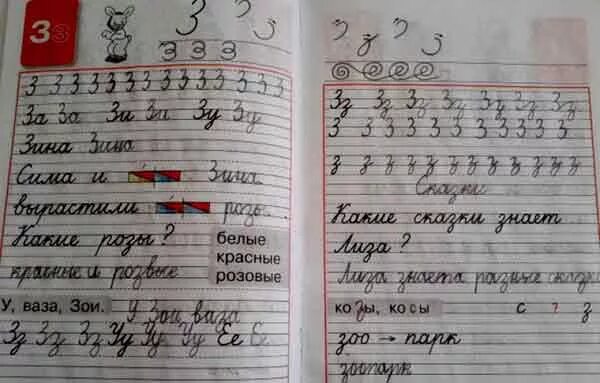 Зз
З З З
З З З З З З З З З З З З З
За За Зи За Зу Зу
Зина Зина
Сима и Зина
вырастили розы.
Какие розы?
белые
красные
розовые
красные и розвые
У, ваза, Зои.
У Зои ваза
Зз Зз Зз Уу Уу Уу Ее Ее
Зз Зз Зз Зз Зз Зз Зз
З З З З З З З З З З
з з з з з з з з з з з
Сказки
Какие сказки знает
Лиза?
Лиза знаета разные сказки
козы, косы
с ? з
зоо → парк
зоопарк